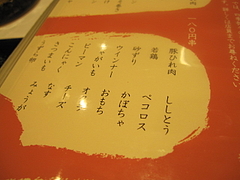 一八〇円串
豚ひれ肉
若鶏
砂ずり
ウインナー
じゃがいも
ピーマン
こんにゃく
さつまいも
うずら卵
ししとう
ペコロス
かぼちゃ
おもち
オクラ
チーズ
なす
みょうが